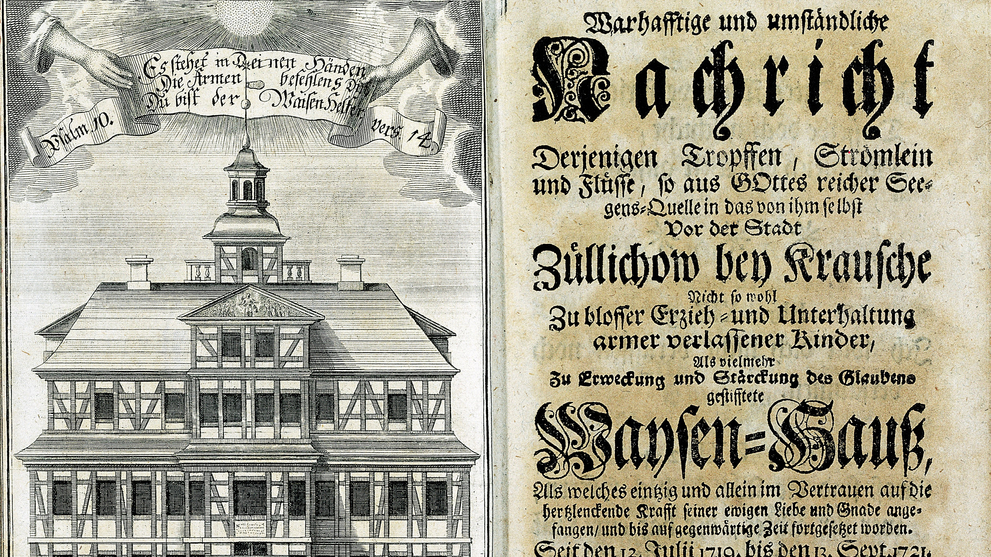 Es stehet in Deinen Händen
Die Armen befehlens Dir
Du bist der Waisen Helfer
Psalm. 10. vers. 14.
Warhafftige und umständliche
Nachricht
Derjenigen Tropffen, Strömlein
und Flüsse, so aus GOttes reicher See-
gens-Quelle in das von ihm selbst
Vor der Stadt
Züllichow bey Krausche
Nicht so wohl
Zu blosser Erzieh- und Unterhaltung
armer verlassener Kinder,
Als vielmehr
Zu Erweckung und Stärckung des Glaubens
gestifftete
Waysen-Hauß,
Als welches eintzig und allein im Vertrauen auf die
hertzlenckende Krafft seiner ewigen Liebe und Gnade ange-
fangen/ und bis auf gegenwärtige Zeit fortgesetzet worden.
Seit den 12. Julii 1719. bis den 12. Sept. 1721.